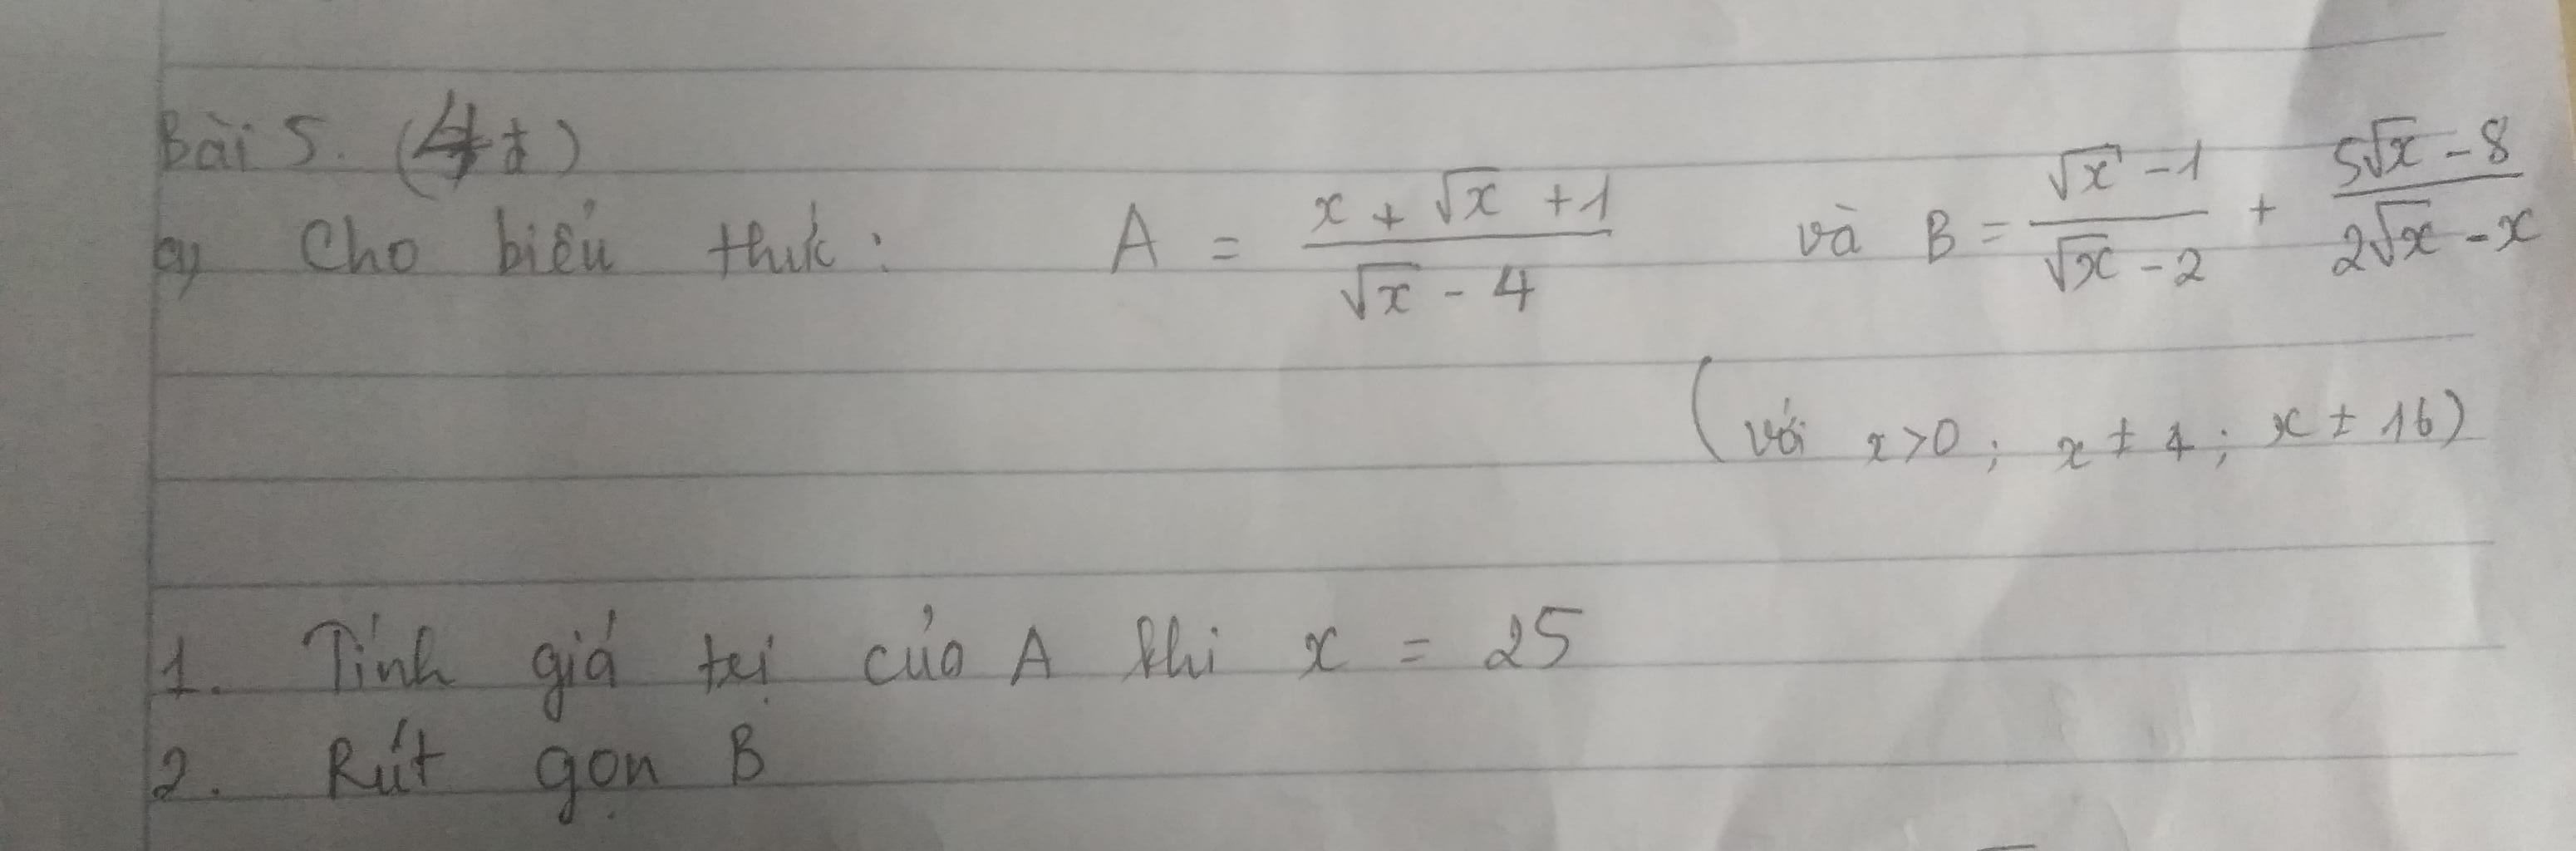 Bài 5. (4đ)
a, Cho biểu thức: A = (x + √x + 1)/(√x - 4) và B = (√x - 1)/(√x - 2) + (5√x - 8)/(2√x - x)
(với x > 0; x ≠ 4; x ≠ 16)
1. Tính giá trị của A khi x = 25
2. Rút gọn B